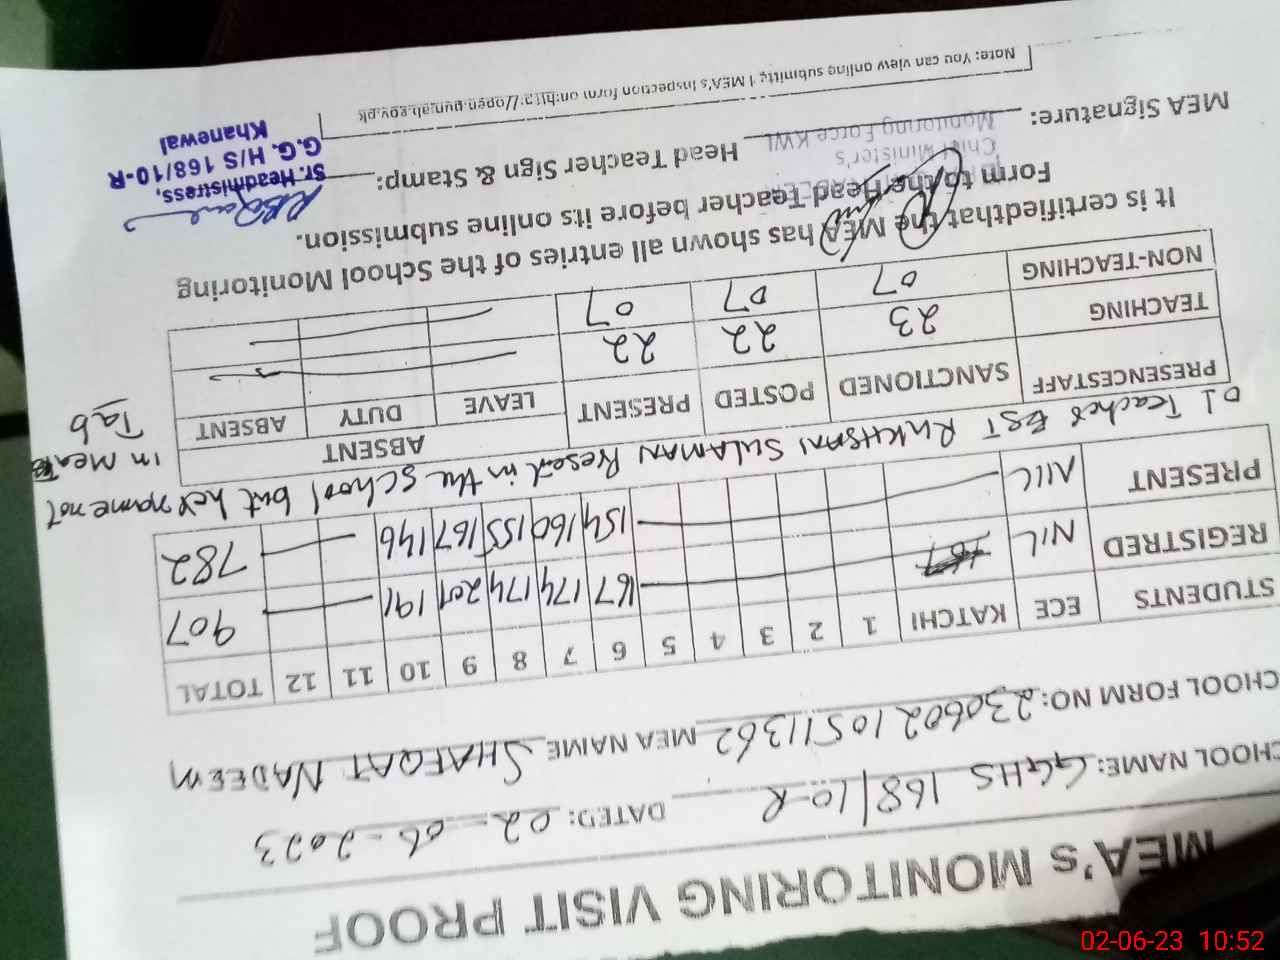 MEA's MONITORING VISIT PROOF
CHOOL NAME: GGHS 168/10-R DATED: 02-06-2023
CHOOL FORM NO: 23060210511362 MEA NAME SHAFQAT NADEEM
STUDENTS ECE KATCHI 1 2 3 4 5 6 7 8 9 10 11 12 TOTAL
REGISTRED NIL 167 174 174 201 191 907
PRESENT NIL 154 160 155 167 146 782
01 Teacher EST RUKHSAN SULAMAN Present in the school but her name not
in Mea Tab
PRESENCESTAFF SANCTIONED POSTED PRESENT ABSENT
LEAVE DUTY ABSENT
TEACHING 23 22 22
NON-TEACHING 07 07 07
It is certifiedthat the MEA has shown all entries of the School Monitoring
Form to the Head Teacher before its online submission.
MEA Signature: Head Teacher Sign & Stamp:
Chief Minister's
Monitoring Force KWL
Sr. Headmistress,
G.G. H/S 168/10-R
Khanewal
Note: You can view online submitted MEA's inspection form on:http://open.punjab.gov.pk
02-06-23 10:52